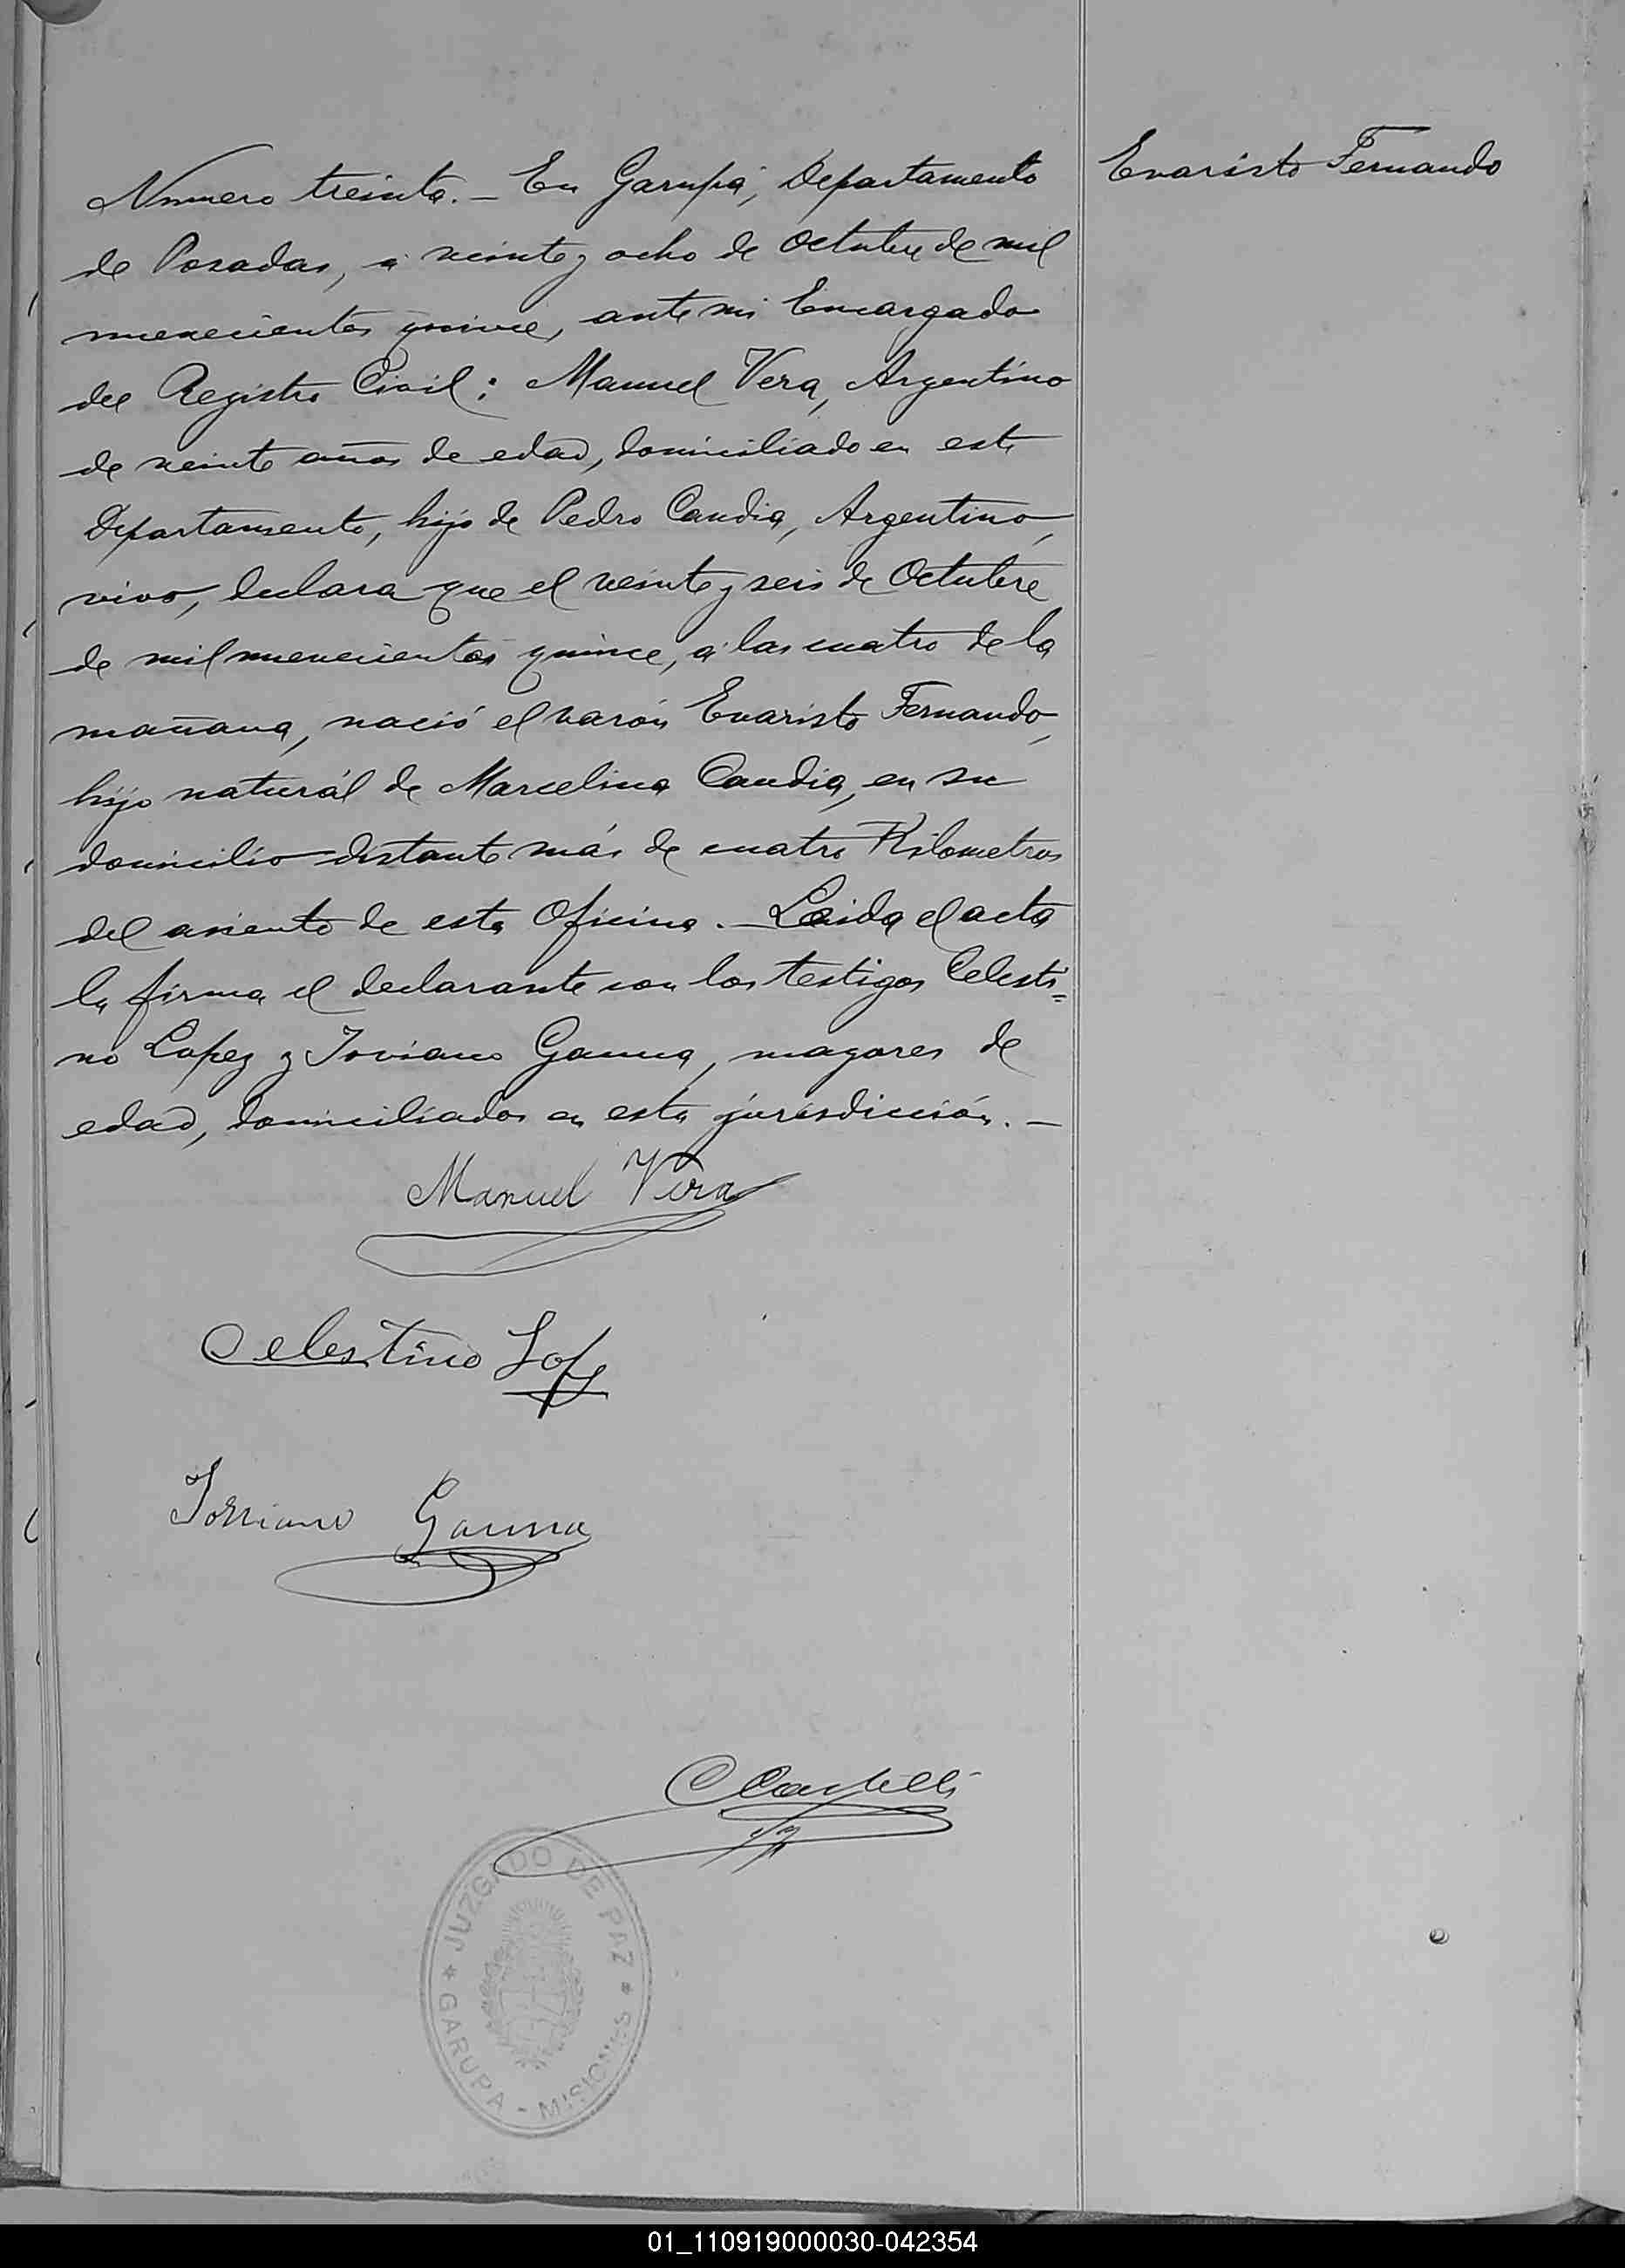 Evaristo Fernando
Numero treinta. – En Garupá, Departamento
de Posadas, á veinte y ocho de Octubre de mil
novecientos quince, ante mi Encargado
del Registro Civil: Manuel Vera, Argentino
de veinte años de edad, domiciliado en este
Departamento, hijo de Pedro Candia, Argentino,
vivo, declara que el veinte y seis de Octubre
de mil novecientos quince, á las cuatro de la
mañana, nació el varón Evaristo Fernando,
hijo naturál de Marcelina Candia, en su
domicilio distante más de cuatro Kilometros
del asiento de esta Oficina. – Leida el acta
la firma el declarante con los testigos Celesti=
no Lopez y Gauna, mayores de
edad, domiciliados en esta jurisdicción. –
Manuel Vera
Celestino
Gauna
JUZGADO DE PAZ
GARUPA - MISIONES
01_110919000030-042354